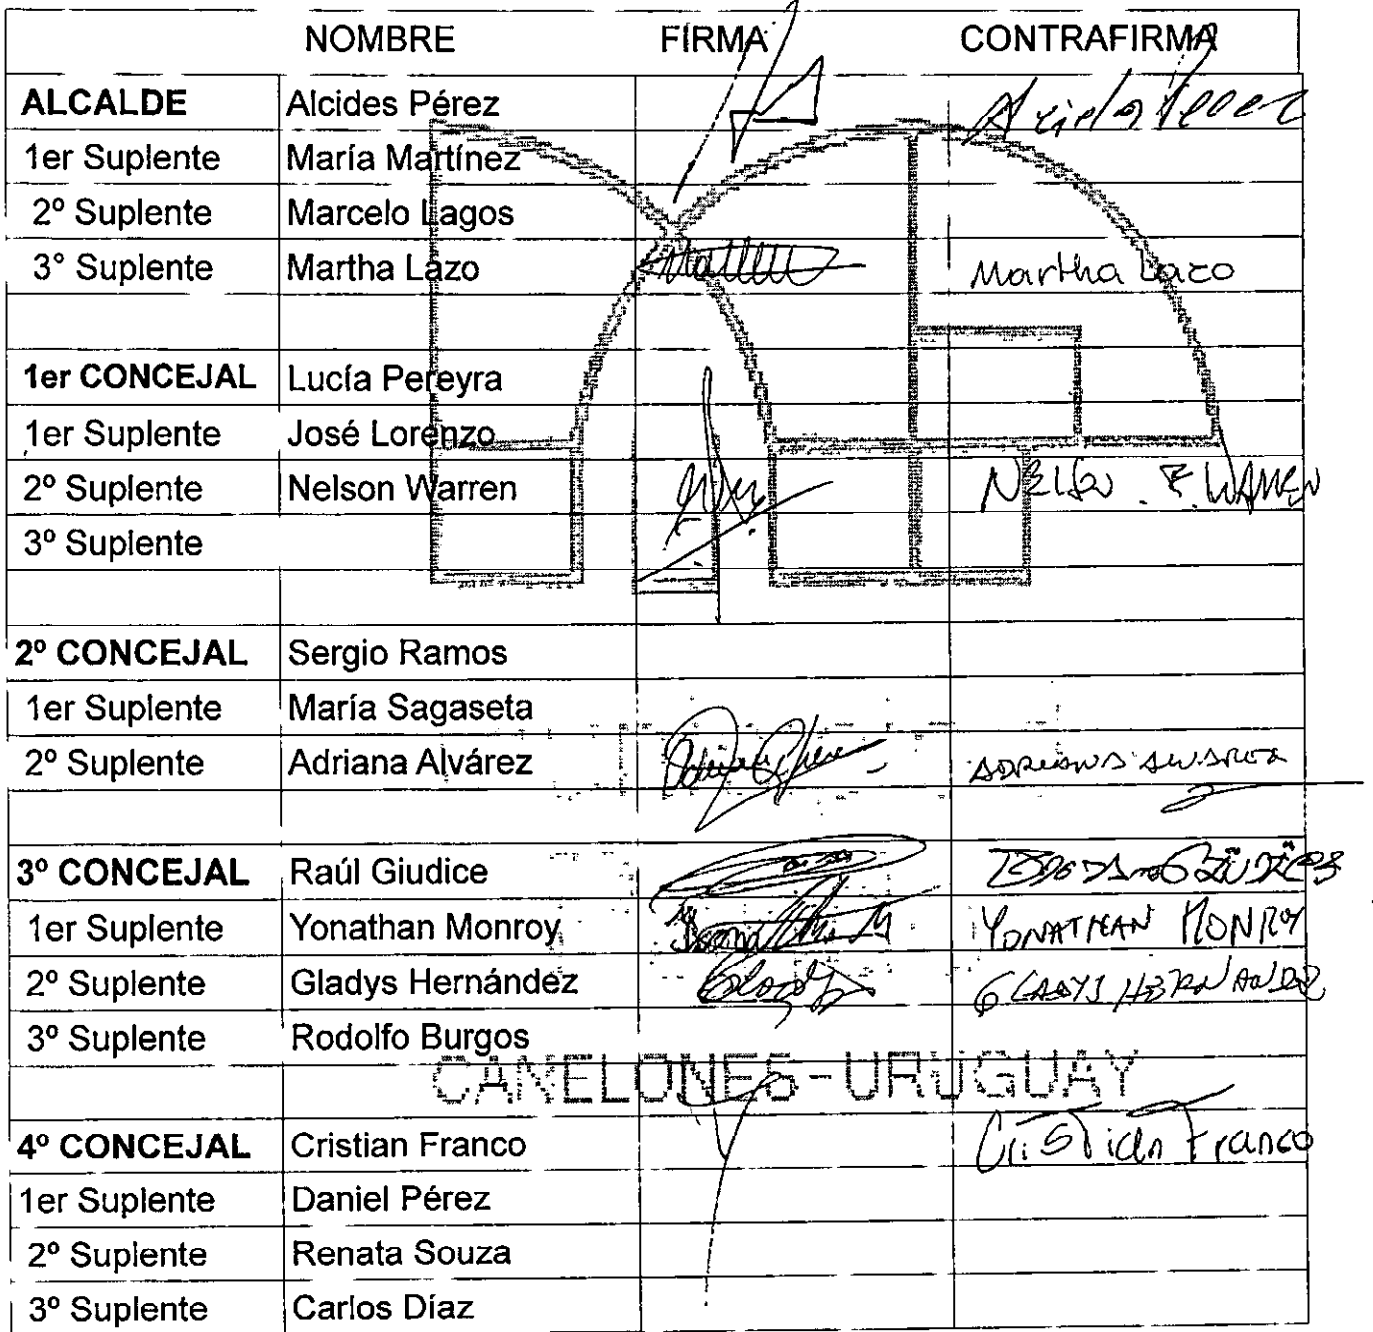 NOMBRE FIRMA CONTRAFIRMA
ALCALDE Alcides Pérez
1er Suplente María Martínez
2º Suplente Marcelo Lagos
3° Suplente Martha Lazo Martha Lazo
1er CONCEJAL Lucía Pereyra
1er Suplente José Lorenzo
2º Suplente Nelson Warren NELSON
3º Suplente
2º CONCEJAL Sergio Ramos
1er Suplente María Sagaseta
2º Suplente Adriana Alvárez ADRIANA ALVAREZ
3º CONCEJAL Raúl Giudice
1er Suplente Yonathan Monroy YONATHAN MONROY
2º Suplente Gladys Hernández GLADYS HERNANDEZ
3º Suplente Rodolfo Burgos
CANELONES-URUGUAY
4º CONCEJAL Cristian Franco Cristian Franco
1er Suplente Daniel Pérez
2º Suplente Renata Souza
3º Suplente Carlos Díaz